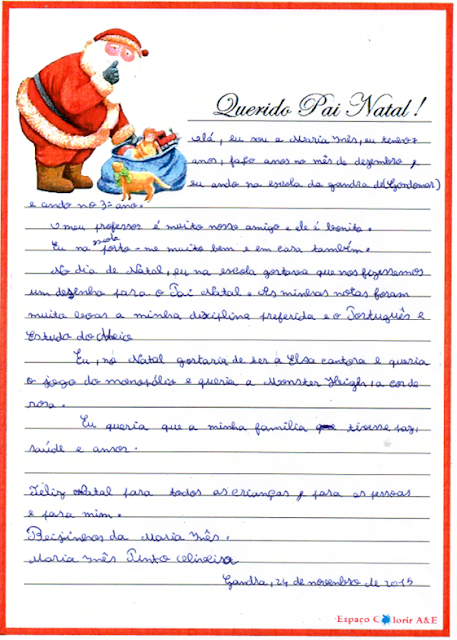 Querido Pai Natal!
olá, eu sou a Maria Inês, eu tenho 7
anos, faço anos no mês de dezembro,
eu ando na escola da gandra de (Gondomar)
e ando no 3º ano.
O meu professor é muito nosso amigo e ele é bonito.
Eu na escola porto-me muito bem e em casa também.
No dia de Natal, eu na escola gostava que nos fizessemos
um desenho para o Pai Natal. As minhas notas foram
muita boas a minha disciplina preferida e o Português e
Estudo do Meio
Eu, no Natal gostaria de ter a Elsa cantora e queria
o jogo do monopólio e queria a Monster Heigh, a cor de
rosa.
Eu queria que a minha família tivesse paz,
saúde e amor.
Feliz Natal para todos as crianças, para as pessoas
e para mim.
Beijinhos da Maria Inês.
Maria Inês Pinto Oliveira
Gandra, 24 de novembro de 2015
Espaço Colorir A&E